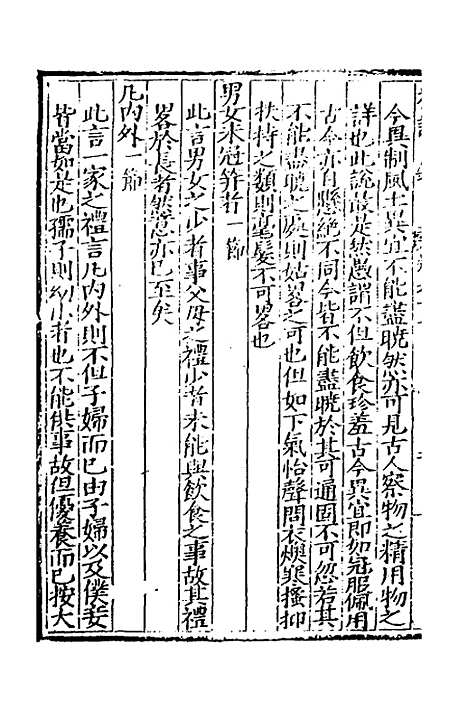 今異制風土異宜不能盡曉然亦可見古人察物之精用物之
詳也此說最是然愚謂不但飲食珍羞古今異宜即如冠服佩用
古今亦自懸絕不同今皆不能盡曉於其可通固不可忽若其
不能盡曉之處則姑畧之可也但如下氣怡聲問衣燠寒搔抑
扶持之類則毫髮不可畧也
男女未冠筓者一節
此言男女之少者事父母之禮少者未能與飲食之事故其禮
畧於長者然意亦已至矣
凡內外一節
此言一家之禮言凡內外則不但子婦而已由子婦以及僕妾
皆當如是也孺子則幼小者也不能供事故但優養而已按大